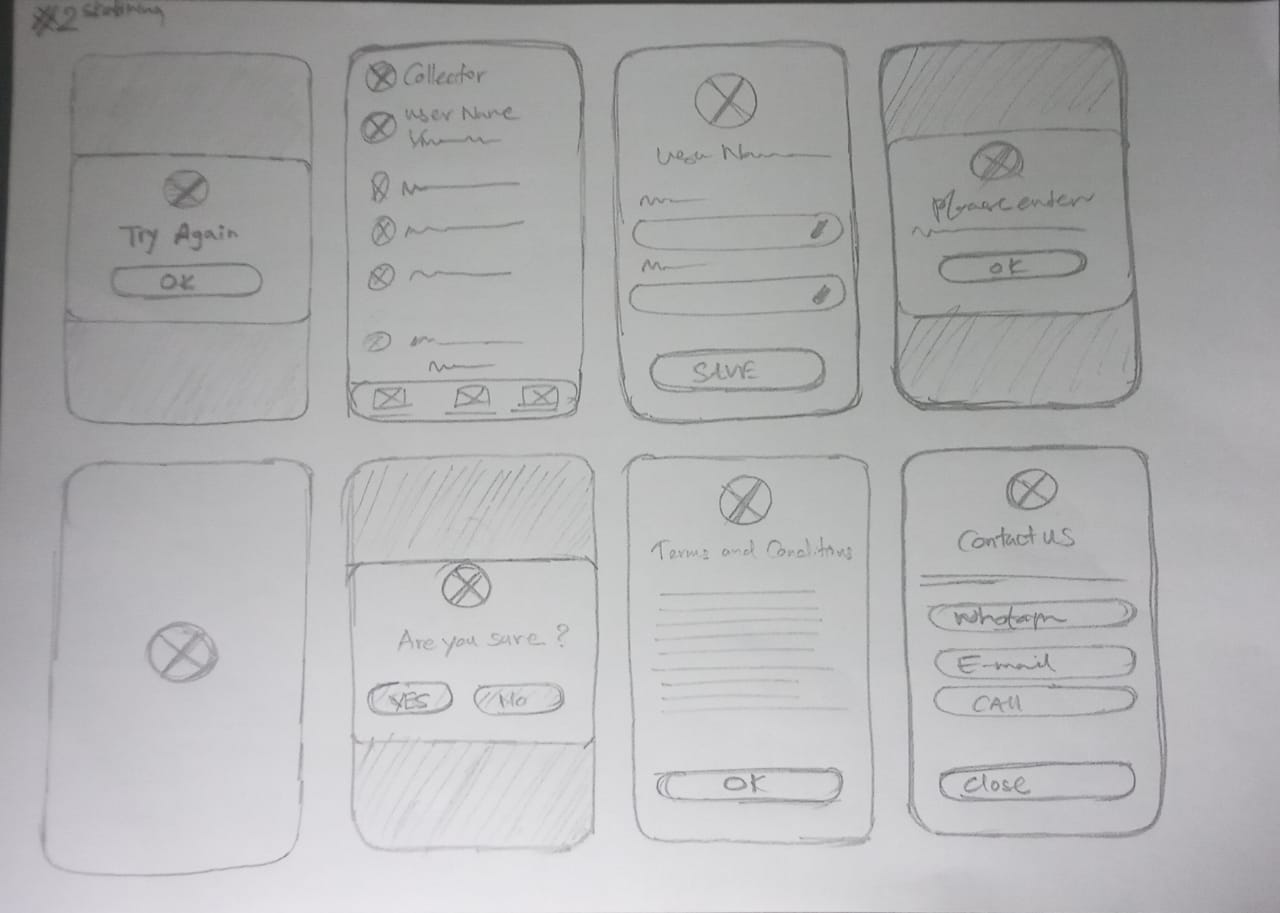 2 Sketching
Try Again
OK
Collector
User Name
User Name
SAVE
Please enter
OK
Are you sure?
YES
No
Terms and Conditions
OK
Contact us
E-mail
CAll
Close